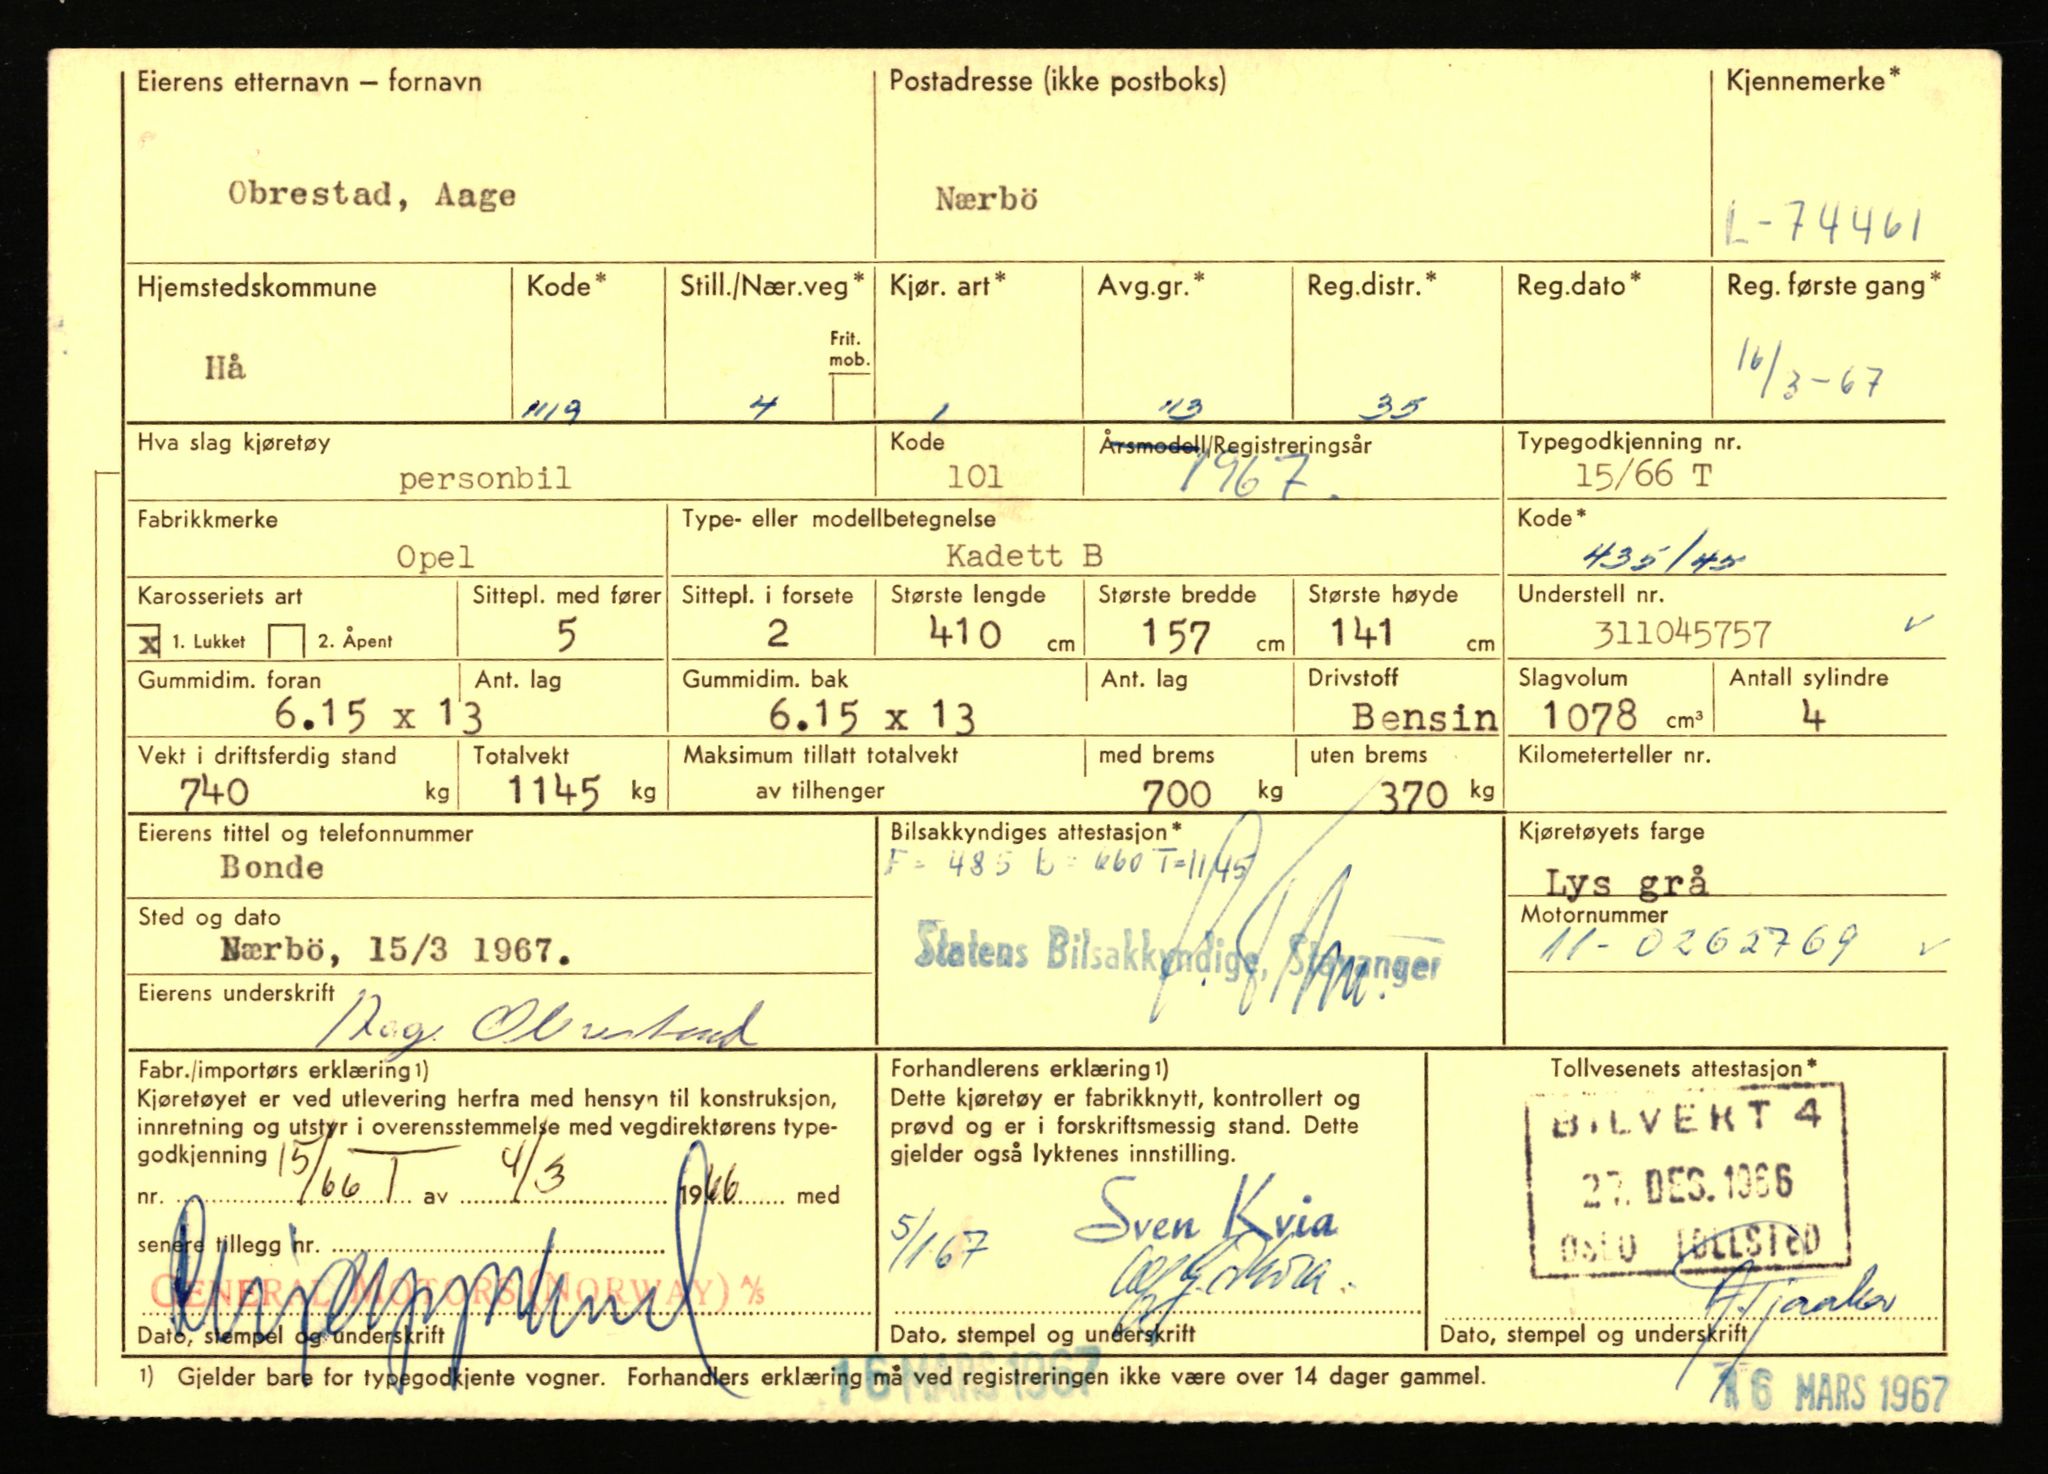 Eierens etternavn – fornavn
Postadresse (ikke postboks)
Kjennemerke*
Obrestad, Aage
Nærbö
L-74461
Hjemstedskommune
Kode*
Still./Nær.veg*
Kjør. art*
Avg.gr.*
Reg.distr.*
Reg.dato*
Reg. første gang*
Frit.
mob.
Hå
1119
4
1
113
35
16/3-67
Hva slag kjøretøy
Kode
Årsmodell/Registreringsår
Typegodkjenning nr.
personbil
101
1967.
15/66 T
Fabrikkmerke
Type- eller modellbetegnelse
Kode*
Opel
Kadett B
435/45
Karosseriets art
Sittepl. med fører
Sittepl. i forsete
Største lengde
Største bredde
Største høyde
Understell nr.
x 1. Lukket
2. Åpent
5
2
410 cm
157 cm
141 cm
311045757
Gummidim. foran
Ant. lag
Gummidim. bak
Ant. lag
Drivstoff
Slagvolum
Antall sylindre
6.15 x 13
6.15 x 13
Bensin
1078 cm³
4
Vekt i driftsferdig stand
Totalvekt
Maksimum tillatt totalvekt
med brems
uten brems
Kilometerteller nr.
740 kg
1145 kg
av tilhenger
700 kg
370 kg
Eierens tittel og telefonnummer
Bilsakkyndiges attestasjon*
Kjøretøyets farge
Bonde
F = 485 b = 660 T=1145
Lys grå
Sted og dato
Motornummer
Nærbö, 15/3 1967.
Statens Bilsakkyndige, Stavanger
11-0262769
Eierens underskrift
Aage Obrestad
Fabr./importørs erklæring1)
Kjøretøyet er ved utlevering herfra med hensyn til konstruksjon,
innretning og utstyr i overensstemmelse med vegdirektørens type-
godkjenning
nr. 15/66 T av 4/3 1966 med
senere tillegg nr.
GENERAL MOTORS (NORWAY) A/S
Dato, stempel og underskrift
Forhandlerens erklæring1)
Dette kjøretøy er fabrikknytt, kontrollert og
prøvd og er i forskriftsmessig stand. Dette
gjelder også lyktenes innstilling.
5/1 67
Sven Kvia
Dato, stempel og underskrift
Tollvesenets attestasjon*
BILVERT 4
27. DES. 1966
OSLO TOLLSTED
Dato, stempel og underskrift
1) Gjelder bare for typegodkjente vogner. Forhandlers erklæring må ved registreringen ikke være over 14 dager gammel.
16 MARS 1967
16 MARS 1967